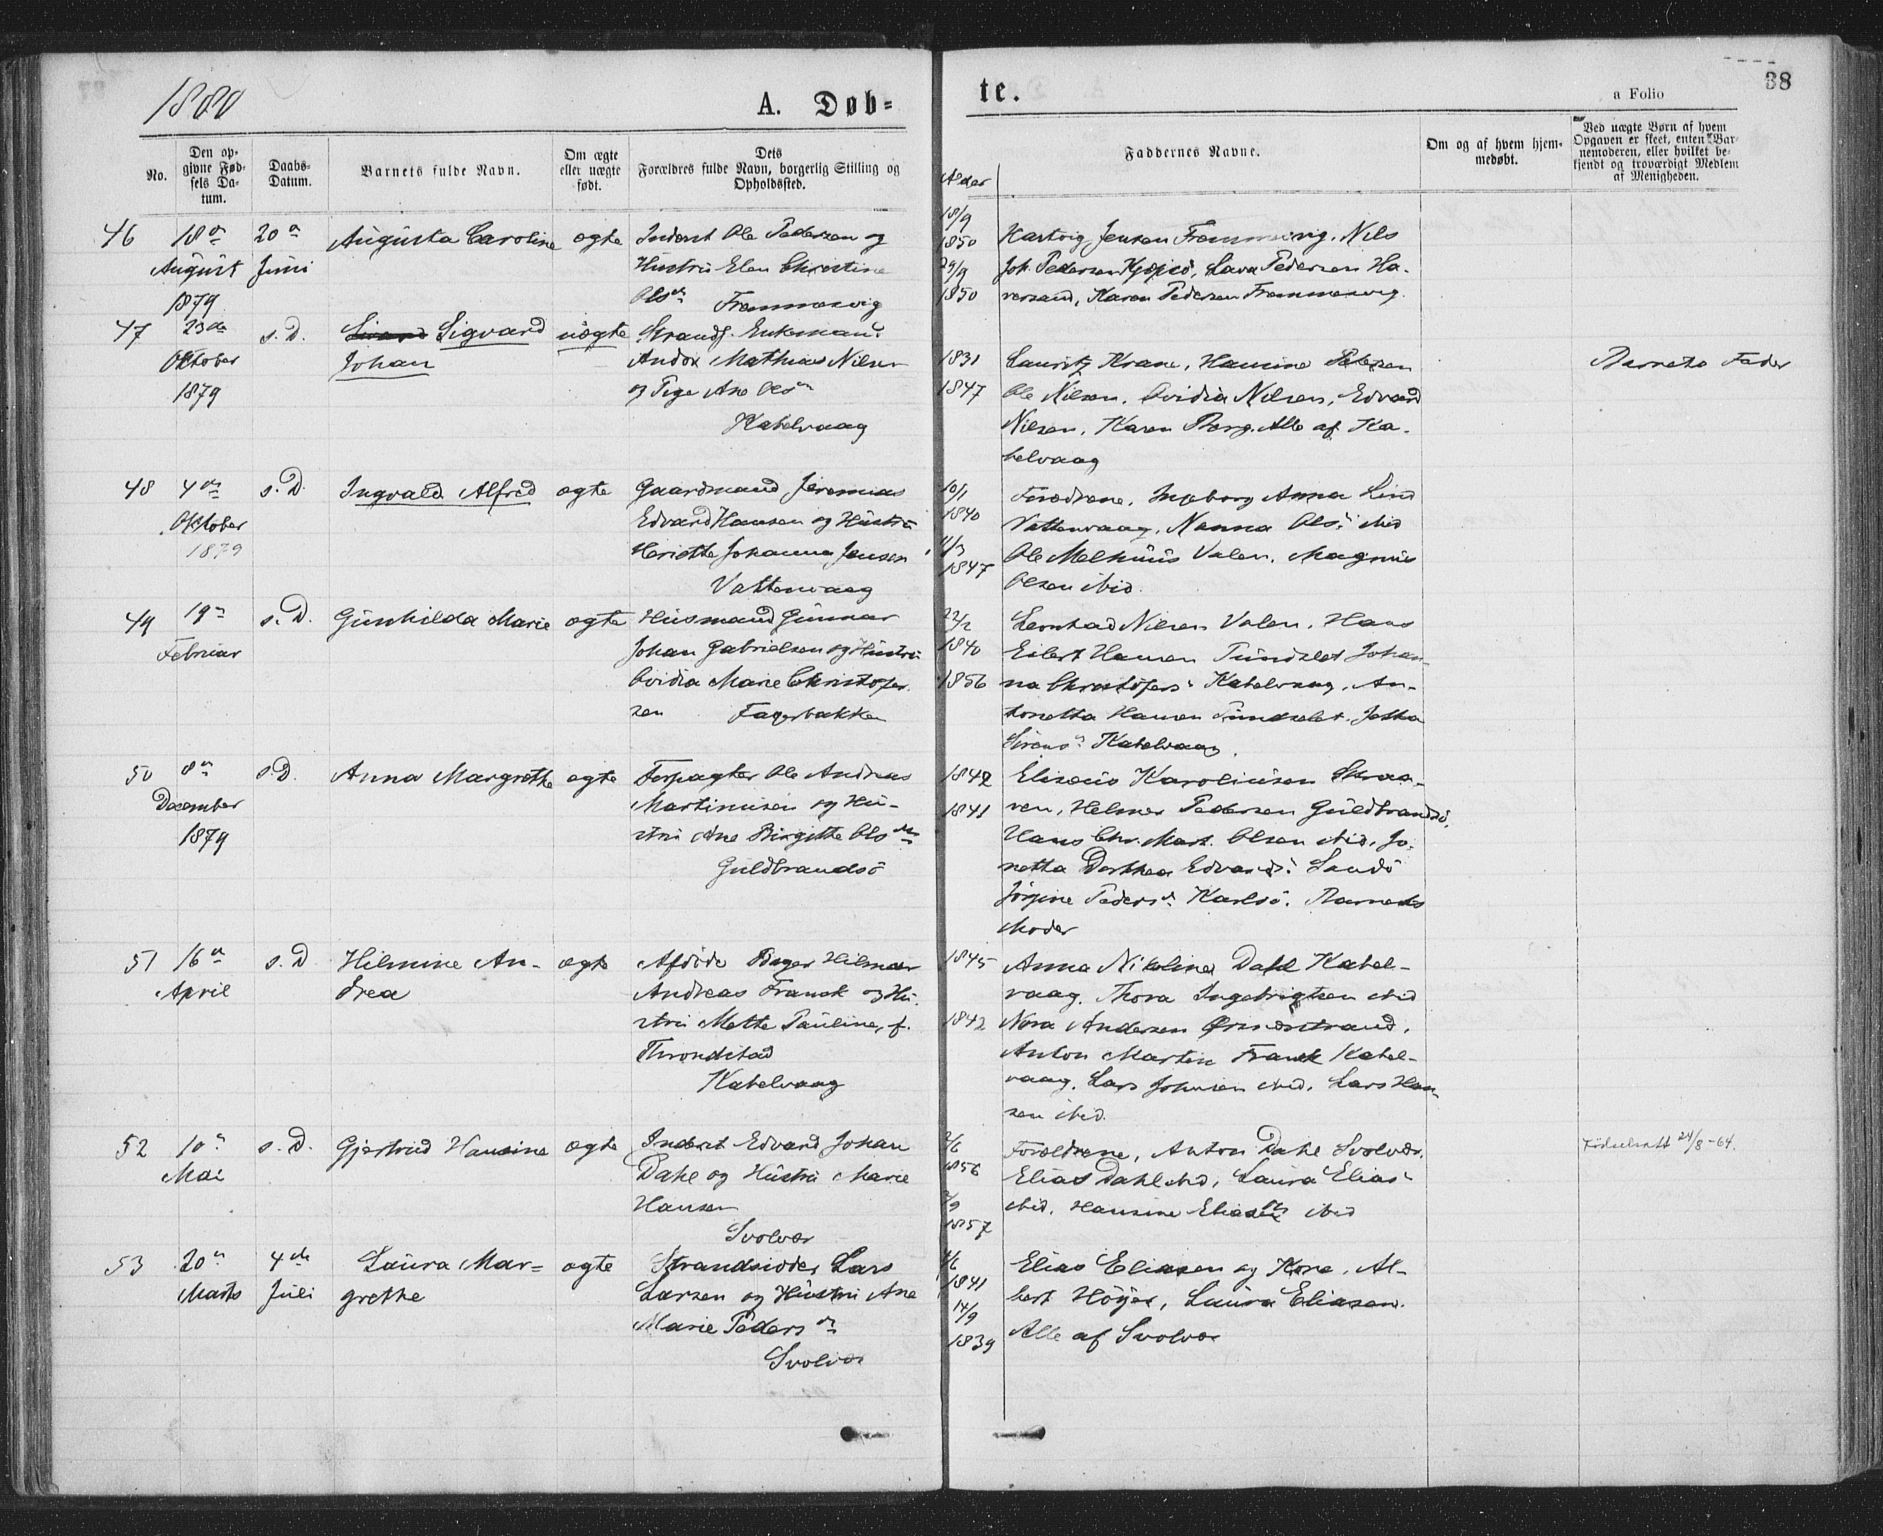 1880
A. Døb-
te.
a Folio
38
No.
Den op-
givne Fød-
sels Da-
tum.
Daabs-
Datum.
Barnets fulde Navn.
Om ægte
eller uægte
født.
Dets
Forældres fulde Navn, borgerlig Stilling og
Opholdssted.
Alder
Faddernes Navne.
Om og af hvem hjem-
medøbt.
Ved uægte Børn af hvem
Opgaven er skeet, enten Bar-
nemoderen, eller hvilket be-
kjendt og troværdigt Medlem
af Menigheden.
46
18de
August
1879
20de
Juni
Augusta Caroline
ægte
Inderst Ole Pedersen og
Hustru Elen Christine
Olsdr
Fremmesvig
18/9
1850
29/9
1850
Hartvig Jensen Fremmesvig, Nils
Joh. Pedersen, Lava Pedersen Ha-
versand, Karen Pedersen Fremmesvig.
47
23de
Oktober
1879
s. D.
Sigvard
Johan
uægte
Strands. Enkemand
Andor Mathias Nilsen
og Pige Ane Olsdr
Kabelvaag
1831
1847
Lauritz Krane, Hansine Petersen
Ole Nilsen, Ovidia Nilsen, Edvard
Nilsen, Karen Berg. Alle af Ka-
belvaag
Barnets Fader
48
4de
Oktober
1879
s. D.
Ingvald Alfred
ægte
Gaardmand Jeremias
Edvard Hansen og Hustru
Henrette Johanna Jensen
Vattervaag
10/1
1840
4/3
1847
Forældrene, Ingeborg Anna Lind
Vattervaag, Nanna Ols. ibid
Ole Melhuus Valen, Magnus
Olsen ibid.
49
19de
Februar
s. D.
Gunhilda Marie
ægte
Husmand Gunnar
Johan Gabrielsen og Hustru
Ovidia Marie Christofer-
sen Fagerbakken
22/2
1840
1856
Leonhad Nilsen Valen, Hans
Eilert Hansen Tundslet Johan-
na Christofers. Kabelvaag, An-
tonetta Hansen Tundslet,
Kabelvaag.
50
8de
December
1879
s. D.
Anna Margrethe
ægte
Forpagter Ole Andreas
Martinusen og Hu-
stru Ane Birgitte Olsdr
Guldbrandsö
1842
1841
Eliseus Karoliusen Skraa-
ven, Helmer Pedersen Guldbrandsö,
Hans Chr. Mart. Olsen ibid, Jo-
netta Dorthea Edvards. Sandö
Jörgine Peders. Karlsö. Barnets
Moder
51
16de
April
s. D
Hilmine An-
drea
ægte
Afdöde Bager Hilmar
Andreas Franck og Hu-
stru Mette Pauline, f.
Throndstad
Kabelvaag
1845
1842
Anna Nikoline Dahl Kabel-
vaag. Thora Ingebrigtsen ibid
Nora Andersen Örsnesstrand,
Anton Martin Franck Kabel-
vaag, Lars Johnsen ibid, Lars Han-
sen ibid.
52
10de
Mai
s. D.
Gjertrud Hansine
ægte
Inderst Edvard Johan
Dahl og Hustru Marie
Hansen
Svolvær
2/6
1856
2/9
1857
Forældrene, Anton Dahl Svolvær.
Elias Dahl ibid, Laura Elias.
ibid, Hansine Eliasdr ibid
Fødselsatt 24/8-64.
53
20de
Marts
4de
Juli
Laura Mar-
grethe
ægte
Strandsidder Lars
Larsen og Hustru Ane
Marie Pedersdr
Svolvær
4/6
1841
14/9
1839
Elias Eliasen og Kone, Al-
bert Höyer, Laura Eliasen.
Alle af Svolvær